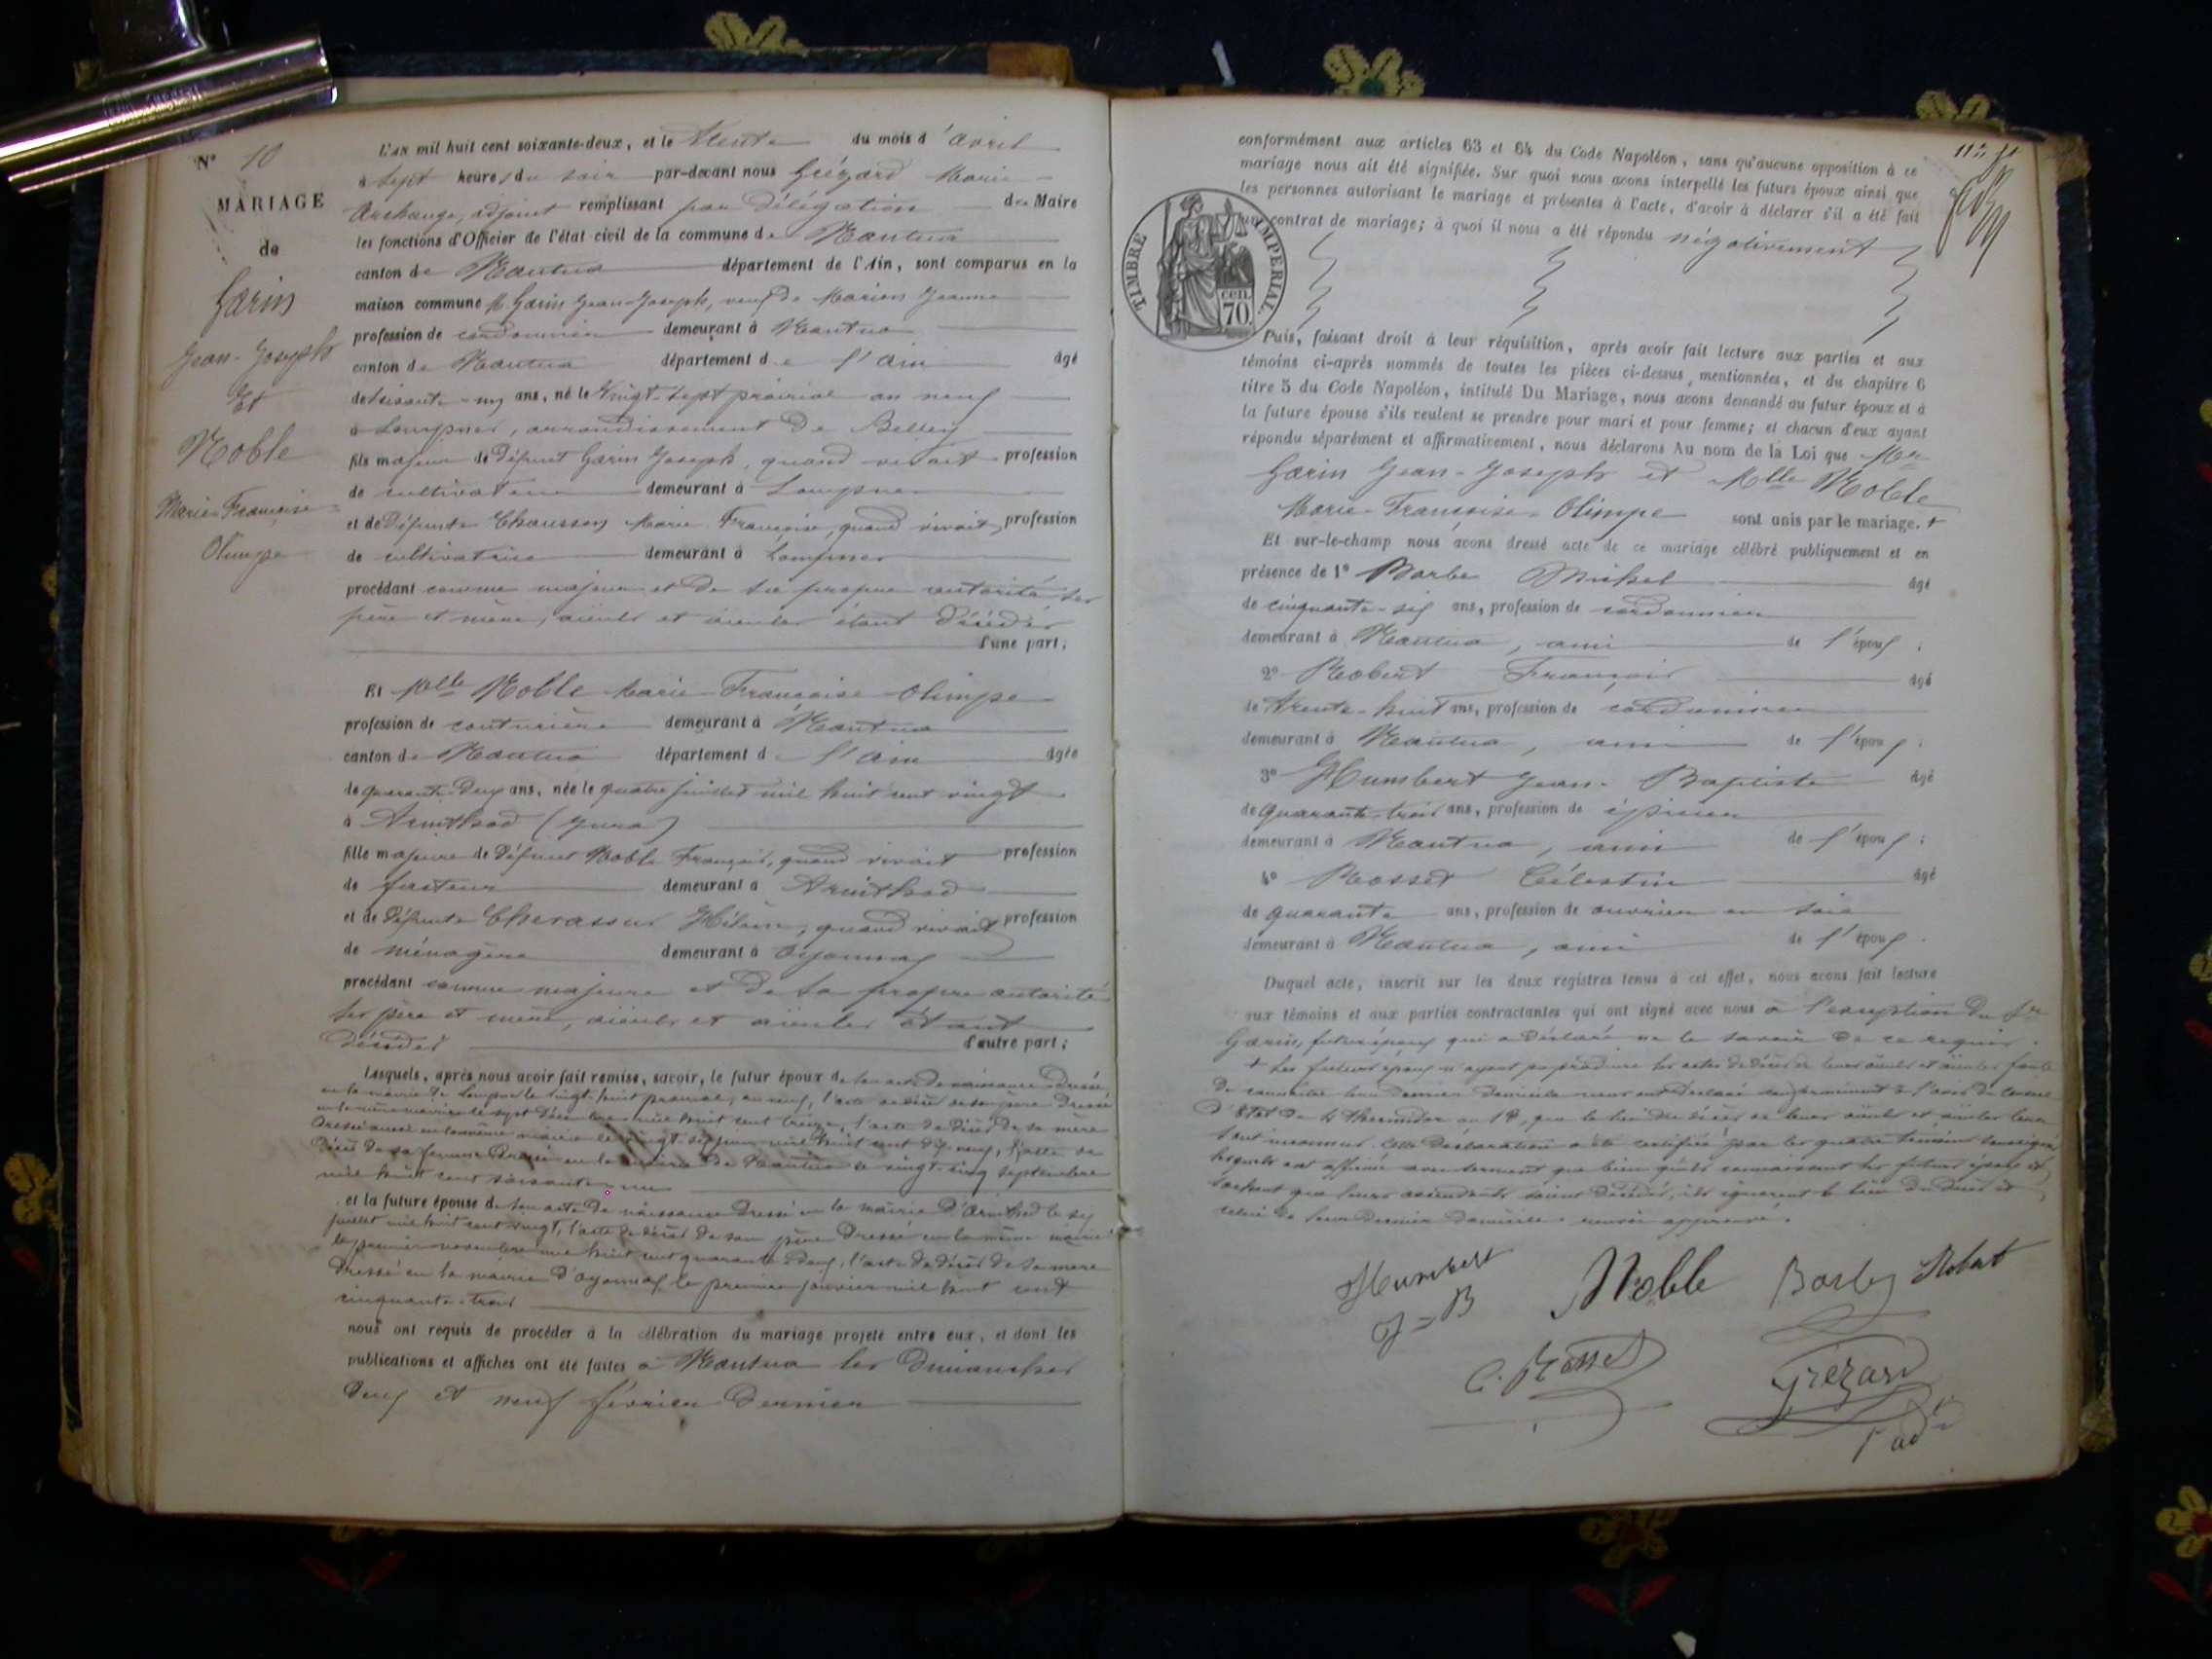 N° 10
MARIAGE
de
Garin
Jean-Joseph
Et
Noble
Marie-Françoise-
Olimpe
L'AN mil huit cent soixante-deux, et le trente du mois d'avril
à sept heures du soir par-devant nous Grézard Marie-
Archange, adjoint remplissant par délégation du Maire
les fonctions d'Officier de l'état civil de la commune de Nantua
canton de Nantua département de l'Ain, sont comparus en la
maison commune M. Garin Jean-Joseph, veuf de Jeanne
profession de cordonnier demeurant à Nantua
canton de Nantua département de l'Ain âgé
de soixante-un ans, né le vingt-sept prairial an neuf
à Lompnes, arrondissement de Belley
fils majeur de défunt Garin Joseph, quand vivait profession
de cultivateur demeurant à Lompnes
et de défunte Chausson Marie Françoise, quand vivait profession
de cultivatrice demeurant à Lompnes
procédant comme majeur et de sa propre autorité ses
père et mère, aïeuls et aïeules étant décédés
d'une part;
Et Melle Noble Marie-Françoise-Olimpe
profession de couturière demeurant à Nantua
canton de Nantua département de l'Ain âgée
de quarante-deux ans, née le quatre juillet mil huit cent vingt
à Arinthod (Jura)
fille majeure de défunt Noble François, quand vivait profession
de facteur demeurant à Arinthod
et de défunte Chevassus Hélène, quand vivait profession
de ménagère demeurant à Oyonnax
procédant comme majeure et de sa propre autorité
ses père et mère, aïeuls et aïeules étant
décédés d'autre part;
Lesquels, après nous avoir fait remise, savoir, le futur époux de son acte de naissance dressé
en la mairie de Lompnes le vingt-huit prairial, an neuf, l'acte de décès de son père dressé
en la même mairie le sept décembre mil huit cent treize, l'acte de décès de sa mère
dressé aussi en la même mairie le vingt-six juin mil huit cent dix-neuf, l'acte de
décès de sa femme dressé en la mairie de Nantua le vingt-cinq septembre
mil huit cent soixante-un
et la future épouse de son acte de naissance dressé en la mairie d'Arinthod le six
juillet mil huit cent vingt, l'acte de décès de son père dressé en la même mairie
le premier novembre mil huit cent quarante-deux, l'acte de décès de sa mère
dressé en la mairie d'Oyonnax, le premier janvier mil huit cent
cinquante-trois
nous ont requis de procéder à la célébration du mariage projeté entre eux, et dont les
publications et affiches ont été faites à Nantua les dimanches
deux et neuf février dernier
conformément aux articles 63 et 64 du Code Napoléon, sans qu'aucune opposition à ce
mariage nous ait été signifiée. Sur quoi nous avons interpellé les futurs époux ainsi que
les personnes autorisant le mariage et présentes à l'acte, d'avoir à déclarer s'il a été fait
un contrat de mariage; à quoi il nous a été répondu négativement
TIMBRE IMPERIAL
CEN. 70.
Puis, faisant droit à leur réquisition, après avoir fait lecture aux parties et aux
témoins ci-après nommés de toutes les pièces ci-dessus mentionnées, et du chapitre 6
titre 5 du Code Napoléon, intitulé Du Mariage, nous avons demandé au futur époux et à
la future épouse s'ils veulent se prendre pour mari et pour femme; et chacun d'eux ayant
répondu séparément et affirmativement, nous déclarons Au nom de la Loi que Mr
Garin Jean-Joseph et Melle Noble
Marie-Françoise-Olimpe sont unis par le mariage. +
Et sur-le-champ nous avons dressé acte de ce mariage célébré publiquement et en
présence de 1° Barbe Michel âgé
de cinquante-six ans, profession de cordonnier
demeurant à Nantua, ami de l'époux;
2° Robert François âgé
de trente-huit ans, profession de cordonnier
demeurant à Nantua, ami de l'époux;
3° Humbert Jean-Baptiste âgé
de quarante-trois ans, profession de épicier
demeurant à Nantua, ami de l'époux;
4° Rosset Célestin âgé
de quarante ans, profession de ouvrier en soie
demeurant à Nantua, ami de l'époux.
Duquel acte, inscrit sur les deux registres tenus à cet effet, nous avons fait lecture
aux témoins et aux parties contractantes qui ont signé avec nous à l'exception du Sr
Garin, futur époux qui a déclaré ne le savoir de ce requis.
+ Les futurs époux n'ayant pu produire les actes de décès de leurs aïeuls et aïeules faute
de connaître leur dernier domicile nous ont déclaré conformément à l'avis du conseil
d'Etat du 4 thermidor an 13, que le lieu du décès de leurs aïeuls et aïeules leur
sont inconnus. cette déclaration a été certifiée par les quatre témoins soussignés
lesquels ont affirmé avec serment que bien qu'ils connaissent les futurs époux et
sachant que leurs ascendants soient décédés, ils ignorent le lieu du décès et
celui de leur dernier domicile. renvoi approuvé.
Humbert
J=B
Noble
Barbe
Robert
C. Rosset
Grézard